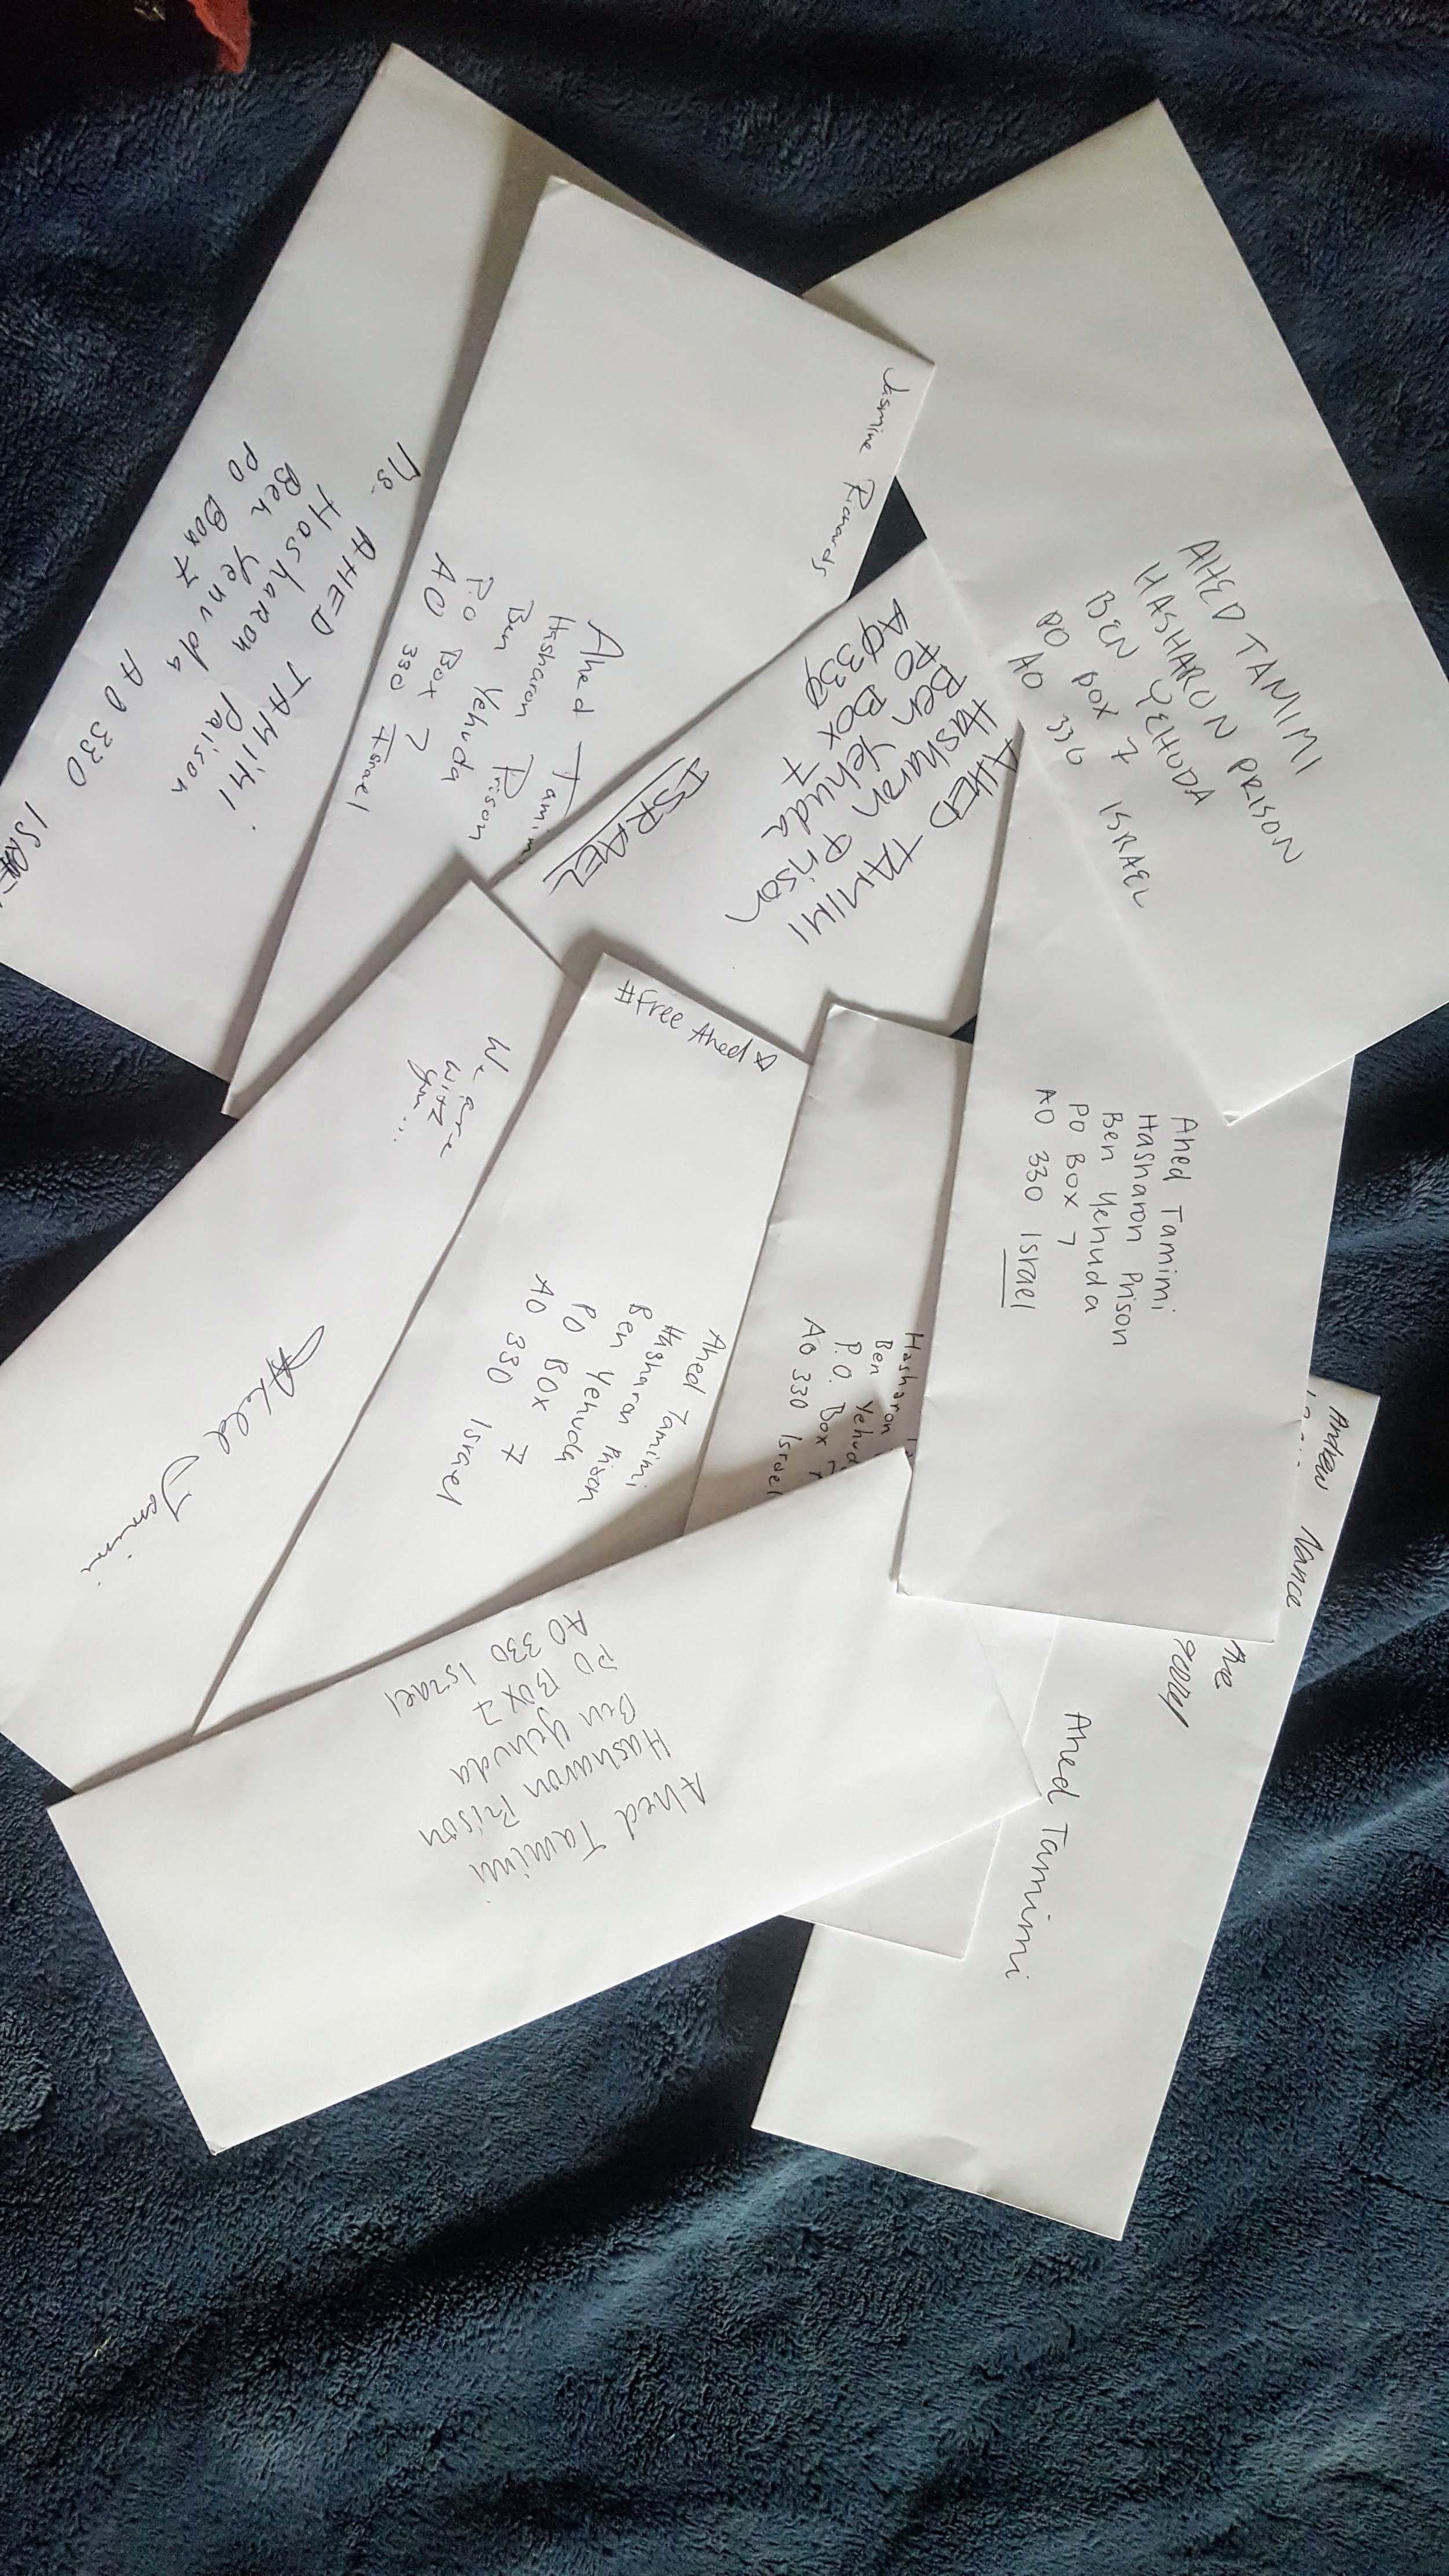 Ms. AHED TAMIMI
Hasharon Prison
Ben Yehuda
PO Box 7
A0 330 ISRA
Jasmine Richards
Ahed Tamimi
Hasharon Prison
Ben Yehuda
P.O Box 7
A0 330 Israel
AHED TAMIMI
Hasharon Prison
Ben Yehuda
PO Box 7
A0330
ISRAEL
AHED TANIMI
HASHARON PRISON
BEN YEHUDA
PO BOX 7
A0 330 ISRAEL
We are
with
you...
Ahed Tamimi
#Free Ahed
Ahed Tamimi
Hasharon Prison
Ben Yehuda
PO BOX 7
A0 330 Israel
Hasharon
Ben Yehud
P.O. Box
A0 330 Israel
Ahed Tamimi
Hasharon Prison
Ben Yehuda
PO Box 7
A0 330 Israel
Ahed Tamimi
Hasharon Prison
Ben Yehuda
PO BOX 7
A0 330 Israel
Andrew Nance
Ahed Tamimi